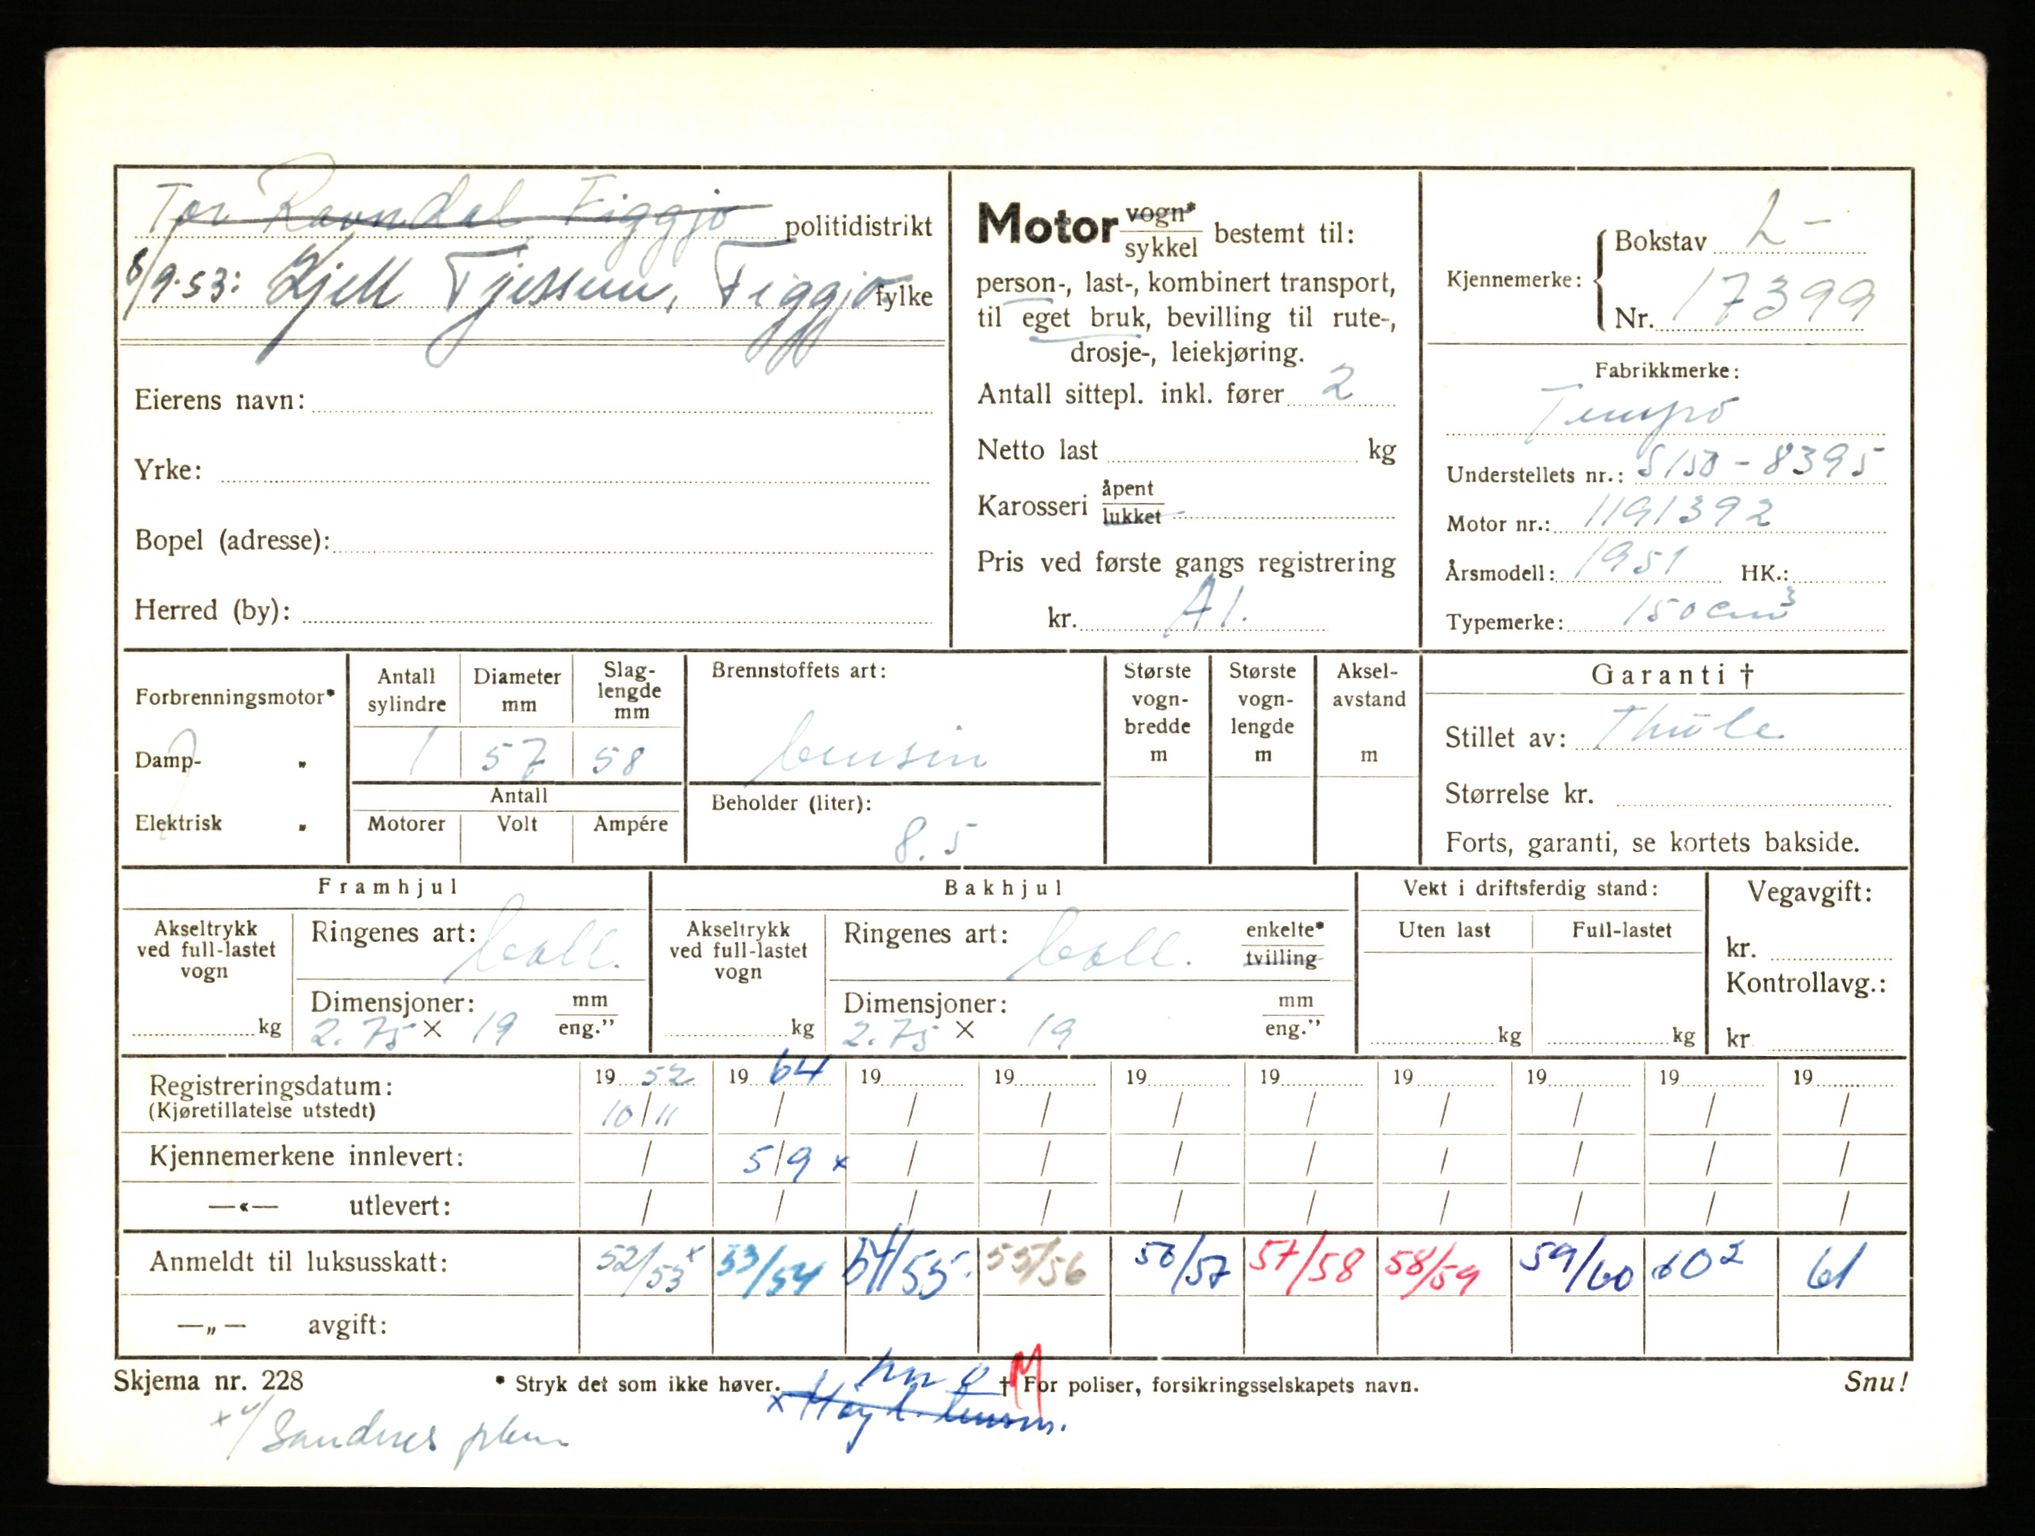 Tor Ravndal, Figgjo politidistrikt
8/9-53: Kjell Tjessem, Figgjo fylke
Eierens navn:
Yrke:
Bopel (adresse):
Herred (by):
Motor vogn*/sykkel bestemt til:
person-, last-, kombinert transport,
til eget bruk, bevilling til rute-,
drosje-, leiekjøring.
Antall sittepl. inkl. fører 2
Netto last kg
Karosseri åpent/lukket
Pris ved første gangs registrering
kr. A1.
Kjennemerke: Bokstav L-
Nr. 17399
Fabrikkmerke:
Tempo
Understellets nr.: S150-8395
Motor nr.: 1191392
Årsmodell: 1951 HK.:
Typemerke: 150 cm3
Forbrenningsmotor*
Damp- "
Elektrisk "
Antall sylindre 1
Diameter mm 57
Slag-lengde mm 58
Antall
Motorer Volt Ampére
Brennstoffets art:
bensin
Beholder (liter):
8.5
Største vogn-bredde m
Største vogn-lengde m
Aksel-avstand m
Garanti †
Stillet av: Thule
Størrelse kr.
Forts, garanti, se kortets bakside.
Framhjul
Akseltrykk ved full-lastet vogn kg
Ringenes art: ball.
Dimensjoner: mm/eng."
2.75 × 19
Bakhjul
Akseltrykk ved full-lastet vogn kg
Ringenes art: ball. enkelte*/tvilling
Dimensjoner: mm/eng."
2.75 × 19
Vekt i driftsferdig stand:
Uten last Full-lastet
kg kg
Vegavgift:
kr.
Kontrollavg.:
kr
Registreringsdatum: 19 52 19 64 19 19 19 19 19 19 19 19
(Kjøretillatelse utstedt) 10/11 / / / / / / / / /
Kjennemerkene innlevert: / 5/9 x / / / / / / / /
—«— utlevert: / / / / / / / / / /
Anmeldt til luksusskatt: 52/53x 53/54 54/55. 55/56 56/57 57/58 58/59 59/60 60² 61
—„— avgift:
Skjema nr. 228 * Stryk det som ikke høver. † For poliser, forsikringsselskapets navn. Snu!
M
x
x Sandnes